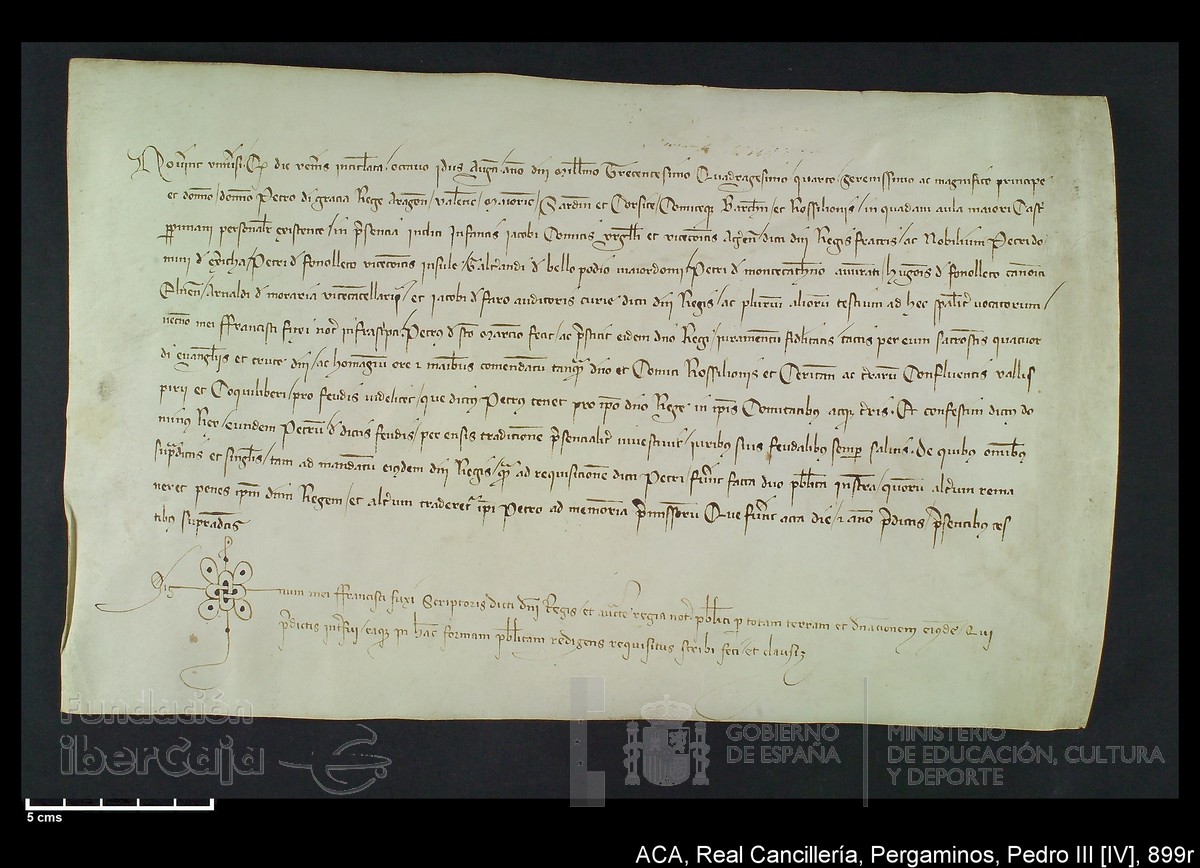 Noverint universi. Q die veneris intitulata octavo idus Augusti anno dni Millmo Trecentesimo Quadragesimo quarto Serenissimo ac magnifico principe
et domno domno Petro di gracia Rege Aragon Valencie Maioric Sardin et Corsice Comiteq Barchn et Rossilionis in quadam aula maiori Castr
ppiniani personalr existente in psencia incliti Infantis Iacobi Comitis Urgelli et vicecomitis Ageren dicti dni Regis fratris ac Nobilium Petri do
mini d exericha Petri d fonolleto vicecomitis insule Galcandi d bello podio maiordomi Petri d montecatheno Hugonis d fonolleto canonici
Elnen Arnaldi d moraria vicecancellarii et Iacobi d faro auditoris curie dicti dni Regis ac plurium aliorum testium ad hec spalir vocatorum
necno mei ffrancisci fuxi notr infrascpti Petrus d sto Marcio fecit ac pstitit eidem dno Regi iuramentum fidelitatis tactis per eum sacrosctis quatuor
di evangliis et cruce dni ac homagium ore et manibus comendatum tanq dno et Comiti Rossilionis et Ceritan ac terrarum Confluentis vallis
pirii et Coquiliberi pro feudis videlicet que dictus Petrus tenet pro ipo dno Rege in ipis Comitatibus acq terris. Et confestim dictus do
minus Rex eundem Petrum d dictis feudis per ensis traditionem psencialir investivit iuribus suis feudalibus semper salvis. De quibus omnibus
supradictis et singulis tam ad mandatum eiusdem dni Regis qm ad requisitionem dicti Petri fuerunt facta duo publica instra quorum alterum rema
neret penes ipm dnum Regem et alterum traderetur ipi Petro ad memoriam pmissorum Que fuerunt acta die et anno pdictis psentibus tes
tibus supradctis
Sig num mei ffrancisci fuxi Scriptoris dicti dni Regis et aucte regia notr publici p totam terram et dnacionem eiusde Qui
pdictis intfui eaq in hac formam publicam redigens requisitus scribi feci et clausi
Fundación
iberCaja
GOBIERNO
DE ESPAÑA
MINISTERIO
DE EDUCACIÓN, CULTURA
Y DEPORTE
5 cms
ACA, Real Cancillería, Pergaminos, Pedro III [IV], 899r